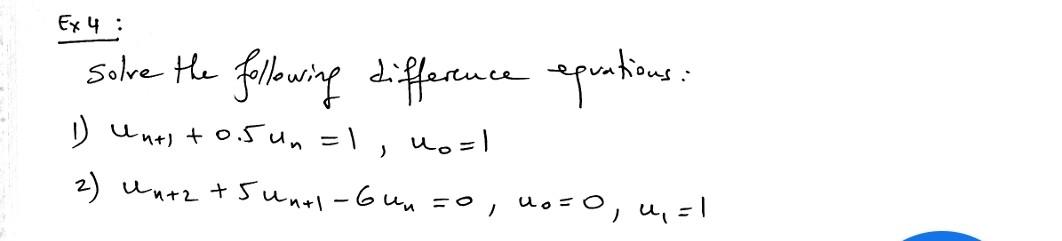 Ex 4 :
Solve the following difference equations :
1) u_{n+1} + 0.5 u_n = 1 , u_0 = 1
2) u_{n+2} + 5 u_{n+1} - 6 u_n = 0 , u_0 = 0 , u_1 = 1